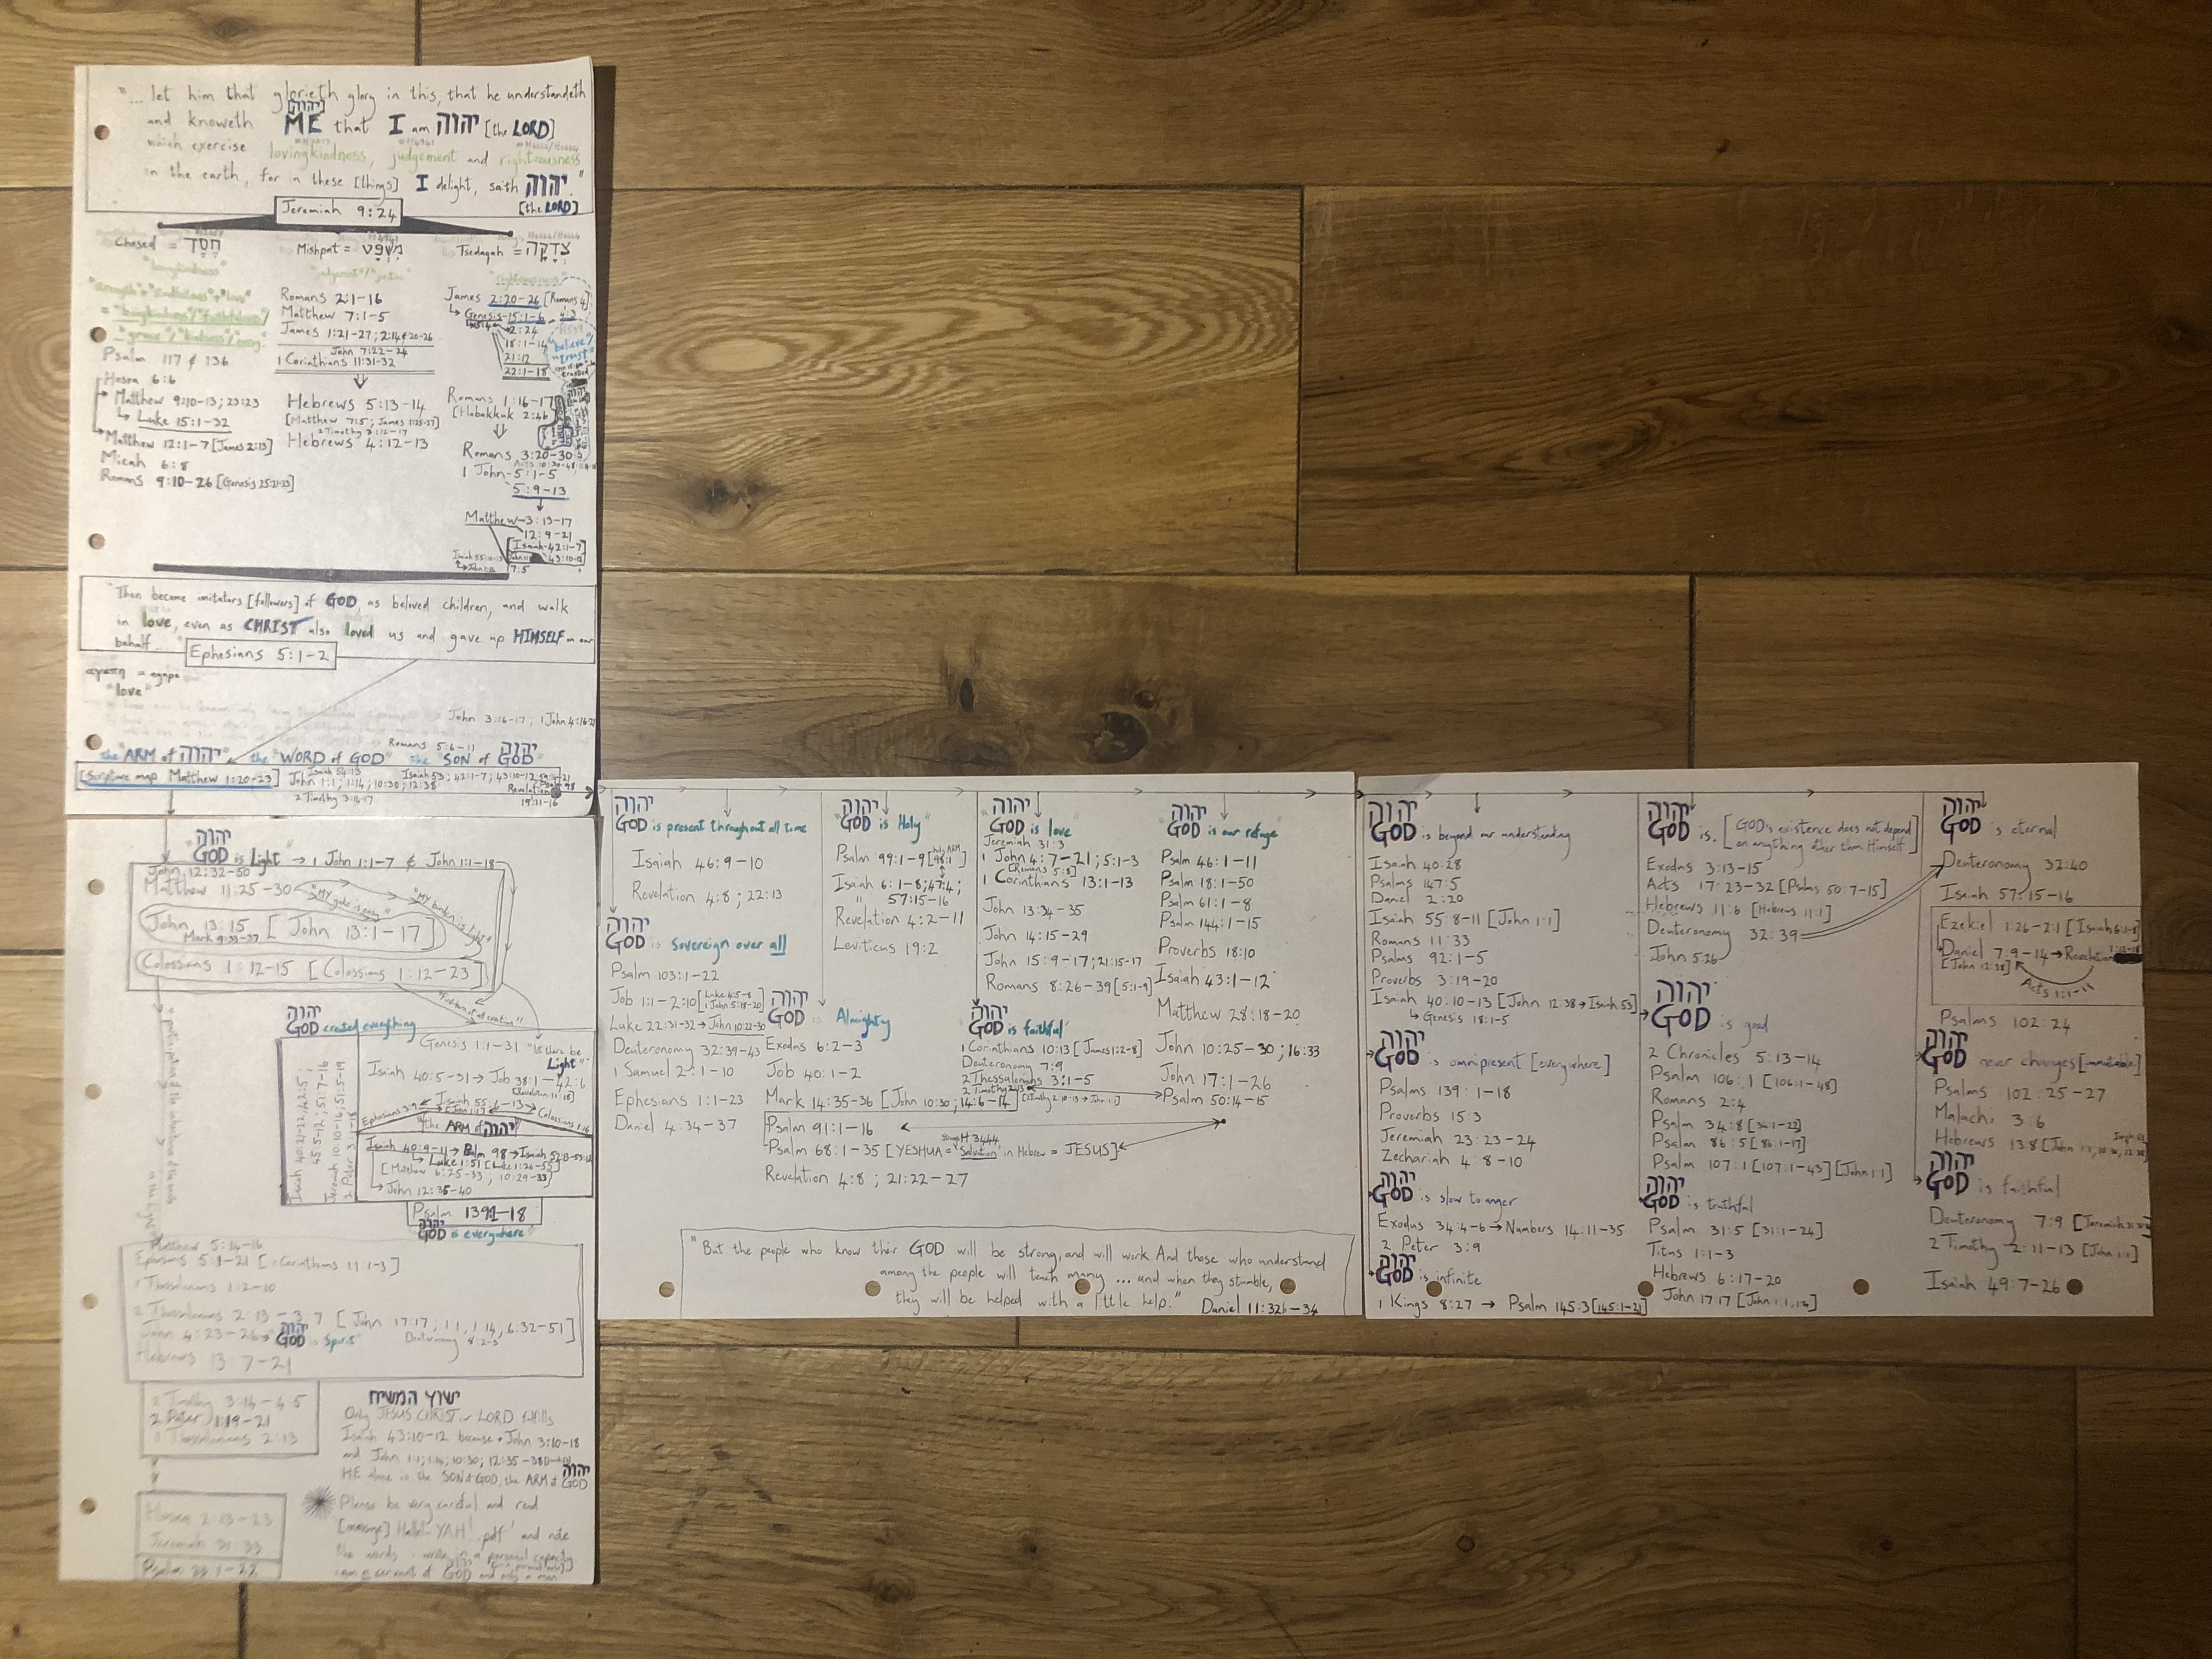 "... let him that glorieth glory in this, that he understandeth
[יהוה]
and knoweth ME that I am יהוה [the LORD]
which exercise lovingkindness, judgement and righteousness
in the earth, for in these [things] I delight, saith יהוה."
[the LORD]
Jeremiah 9:24
Chesed = חֶסֶד
"lovingkindness"
Psalm 117 & 136
Hosea 6:6
Matthew 9:10-13; 23:23
Luke 15:1-32
Matthew 12:1-7 [James 2:13]
Micah 6:8
Romans 9:10-26 [Genesis 25:21-23]
Mishpat = מִשְׁפָּט
"judgement"/"justice"
Romans 2:1-16
Matthew 7:1-5
James 1:21-27; 2:14 & 20-26
John 7:22-24
1 Corinthians 11:31-32
Hebrews 5:13-14
[Matthew 7:5; James 1:25-27]
2 Timothy 3:12-17
Hebrews 4:12-13
Tsedaqah = צְדָקָה
"righteousness"
James 2:20-26 [Romans 4]
Genesis 15:1-6
2:24
18:1-14
21:12
22:1-18
"believe"/
"trust"
Romans 1:16-17
[Habakkuk 2:4b
Romans 3:20-30
1 John 5:1-5
5:9-13
Matthew 3:13-17
12:9-21
[Isaiah 42:1-7
43:10-12]
7:5
"Then become imitators [followers] of GOD, as beloved children, and walk
in love, even as CHRIST also loved us and gave up HIMSELF on our
behalf..."
Ephesians 5:1-2
αγαπη = agape
"love"
John 3:16-17, 1 John 4:16-21
Romans 5:6-11
the "ARM of יהוה" the "WORD of GOD" the "SON of GOD"
יהוה
[Scripture map Matthew 1:20-23]
Isaiah 54:13
John 1:1; 1:14; 10:30; 12:38
2 Timothy 3:14-17
Isaiah 53; 42:1-7; 43:10-12
Revelation
19:11-16
יהוה
GOD is Light → 1 John 1:1-7 & John 1:1-18
John 12:32-50
Matthew 11:25-30
"MY yoke is easy"
"MY burden is light"
John 13:15 [John 13:1-17]
Mark 9:33-37
Colossians 1:12-15 [Colossians 1:12-23]
"Firstborn of all creation"
יהוה
GOD created everything
Genesis 1:1-31 "let there be
Light"
Isaiah 40:5-31 → Job 38:1-42:6
Isaiah 55:6-13
Ephesians 3:9
Colossians 1:16
"the ARM of יהוה"
Isaiah 40:9-11 → Psalm 98 → Isaiah 52:13-53:12
Luke 1:51 [Luke 1:26-55]
[Matthew 6:25-33; 10:29-33]
John 12:35-40
Isaiah 40:21-22; 42:5;
45:5-12; 51:7-16
Jeremiah 10:10-16; 51:5-19
Psalm 139:1-18
יהוה
GOD is everywhere
Matthew 5:14-16
Ephesians 5:1-21 [1 Corinthians 11:1-3]
1 Thessalonians 1:2-10
2 Thessalonians 2:13-3:7 [John 17:17; 1:1; 1:14; 6:32-51]
Deuteronomy 8:2-3
John 4:23-26 → יהוה GOD is Spirit
Hebrews 13:7-21
2 Timothy 3:14-4:5
2 Peter 1:19-21
1 Thessalonians 2:13
Hosea 2:13-23
Jeremiah 31:33
Psalm 33:1-22
Only JESUS CHRIST or LORD fulfills
Isaiah 43:10-12 because John 3:10-18
and John 1:1; 1:14; 10:30; 12:35-38
HE alone is the SON of GOD, the ARM of GOD
יהוה
Please be very careful and read
[message] Hallelu YAH! .pdf' and note
the words in a personal capacity
I am a servant of GOD and only a man
יהוה
GOD is present throughout all time
Isaiah 46:9-10
Revelation 4:8; 22:13
יהוה
GOD is Sovereign over all
Psalm 103:1-22
Job 1:1-2:10 [Luke 4:5-8
1 John 5:18-20]
Luke 22:31-32 → John 10:22-30
Deuteronomy 32:39-43
1 Samuel 2:1-10
Ephesians 1:1-23
Daniel 4:34-37
יהוה
"GOD is Holy"
Psalm 99:1-9
Isaiah 6:1-8; 47:4;
" 57:15-16
Revelation 4:2-11
Leviticus 19:2
יהוה
GOD is Almighty
Exodus 6:2-3
Job 40:1-2
Mark 14:35-36 [John 10:30; 14:6-14]
Psalm 91:1-16
Psalm 68:1-35 [YESHUA = "Salvation" in Hebrew = JESUS]
H3444
Revelation 4:8; 21:22-27
יהוה
GOD is love
Jeremiah 31:3
1 John 4:7-21; 5:1-3
[Romans 5:8]
1 Corinthians 13:1-13
John 13:34-35
John 14:15-29
John 15:9-17; 21:15-17
Romans 8:26-39 [5:1-9]
יהוה
GOD is faithful
1 Corinthians 10:13 [James 1:2-8]
Deuteronomy 7:9
2 Thessalonians 3:1-5
יהוה
GOD is our refuge
Psalm 46:1-11
Psalm 18:1-50
Psalm 61:1-8
Psalm 144:1-15
Proverbs 18:10
Isaiah 43:1-12
Matthew 28:18-20
John 10:25-30; 16:33
John 17:1-26
Psalm 50:14-15
"But the people who know their GOD will be strong, and will work. And those who understand
among the people will teach many ... and when they stumble,
they will be helped with a little help." Daniel 11:32b-34
יהוה
GOD is beyond our understanding
Isaiah 40:28
Psalms 147:5
Daniel 2:20
Isaiah 55:8-11 [John 1:1]
Romans 11:33
Psalms 92:1-5
Proverbs 3:19-20
Isaiah 40:10-13 [John 12:38 → Isaiah 53]
Genesis 18:1-5
יהוה
GOD is omnipresent [everywhere]
Psalms 139:1-18
Proverbs 15:3
Jeremiah 23:23-24
Zechariah 4:8-10
יהוה
GOD is slow to anger
Exodus 34:4-6 → Numbers 14:11-35
2 Peter 3:9
יהוה
GOD is infinite
1 Kings 8:27 → Psalm 145:3 [145:1-21]
יהוה
GOD is. [GOD's existence does not depend
on anything other than Himself]
Exodus 3:13-15
Acts 17:23-32 [Psalms 50:7-15]
Hebrews 11:6 [Hebrews 11:1]
Deuteronomy 32:39
John 5:26
יהוה
GOD is good
2 Chronicles 5:13-14
Psalm 106:1 [106:1-48]
Romans 2:4
Psalm 34:8 [34:1-22]
Psalm 86:5 [86:1-17]
Psalm 107:1 [107:1-43] [John 1:1]
יהוה
GOD is truthful
Psalm 31:5 [31:1-24]
Titus 1:1-3
Hebrews 6:17-20
John 17:17 [John 1:1,14]
יהוה
GOD is eternal
Deuteronomy 32:40
Isaiah 57:15-16
Ezekiel 1:26-2:1 [Isaiah 6:1-8]
Daniel 7:9-14 → Revelation
[John 12:38]
Acts 1:1-11
Psalms 102:24
יהוה
GOD never changes [immutable]
Psalms 102:25-27
Malachi 3:6
Hebrews 13:8
יהוה
GOD is faithful
Deuteronomy 7:9
2 Timothy 2:11-13 [John 1:1]
Isaiah 49:7-26